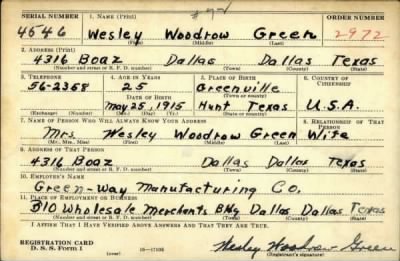 SERIAL NUMBER 1. NAME (Print) ORDER NUMBER
4546 Wesley Woodrow Green 2972
(First) (Middle) (Last)
2. ADDRESS (Print)
4316 Boaz Dallas Dallas Texas
(Number and street or R. F. D. number) (Town) (County) (State)
3. TELEPHONE 4. AGE IN YEARS 5. PLACE OF BIRTH 6. COUNTRY OF CITIZENSHIP
56-2358 25 Greenville U.S.A.
DATE OF BIRTH (Town or county)
May 25, 1915 Hunt Texas
(Exchange) (Number) (Mo.) (Day) (Yr.) (State or country)
7. NAME OF PERSON WHO WILL ALWAYS KNOW YOUR ADDRESS 8. RELATIONSHIP OF THAT PERSON
Mrs. Wesley Woodrow Green Wife
(Mr., Mrs., Miss) (First) (Middle) (Last)
9. ADDRESS OF THAT PERSON
4316 Boaz Dallas Dallas Texas
(Number and street or R. F. D. number) (Town) (County) (State)
10. EMPLOYER'S NAME
Green-Way Manufacturing Co.
11. PLACE OF EMPLOYMENT OR BUSINESS
310 Wholesale Merchants Bldg Dallas Dallas Texas
(Number and street or R. F. D. number) (Town) (County) (State)
I AFFIRM THAT I HAVE VERIFIED ABOVE ANSWERS AND THAT THEY ARE TRUE.
REGISTRATION CARD
D. S. S. FORM 1 (over) Wesley Woodrow Green
(Registrant's signature)